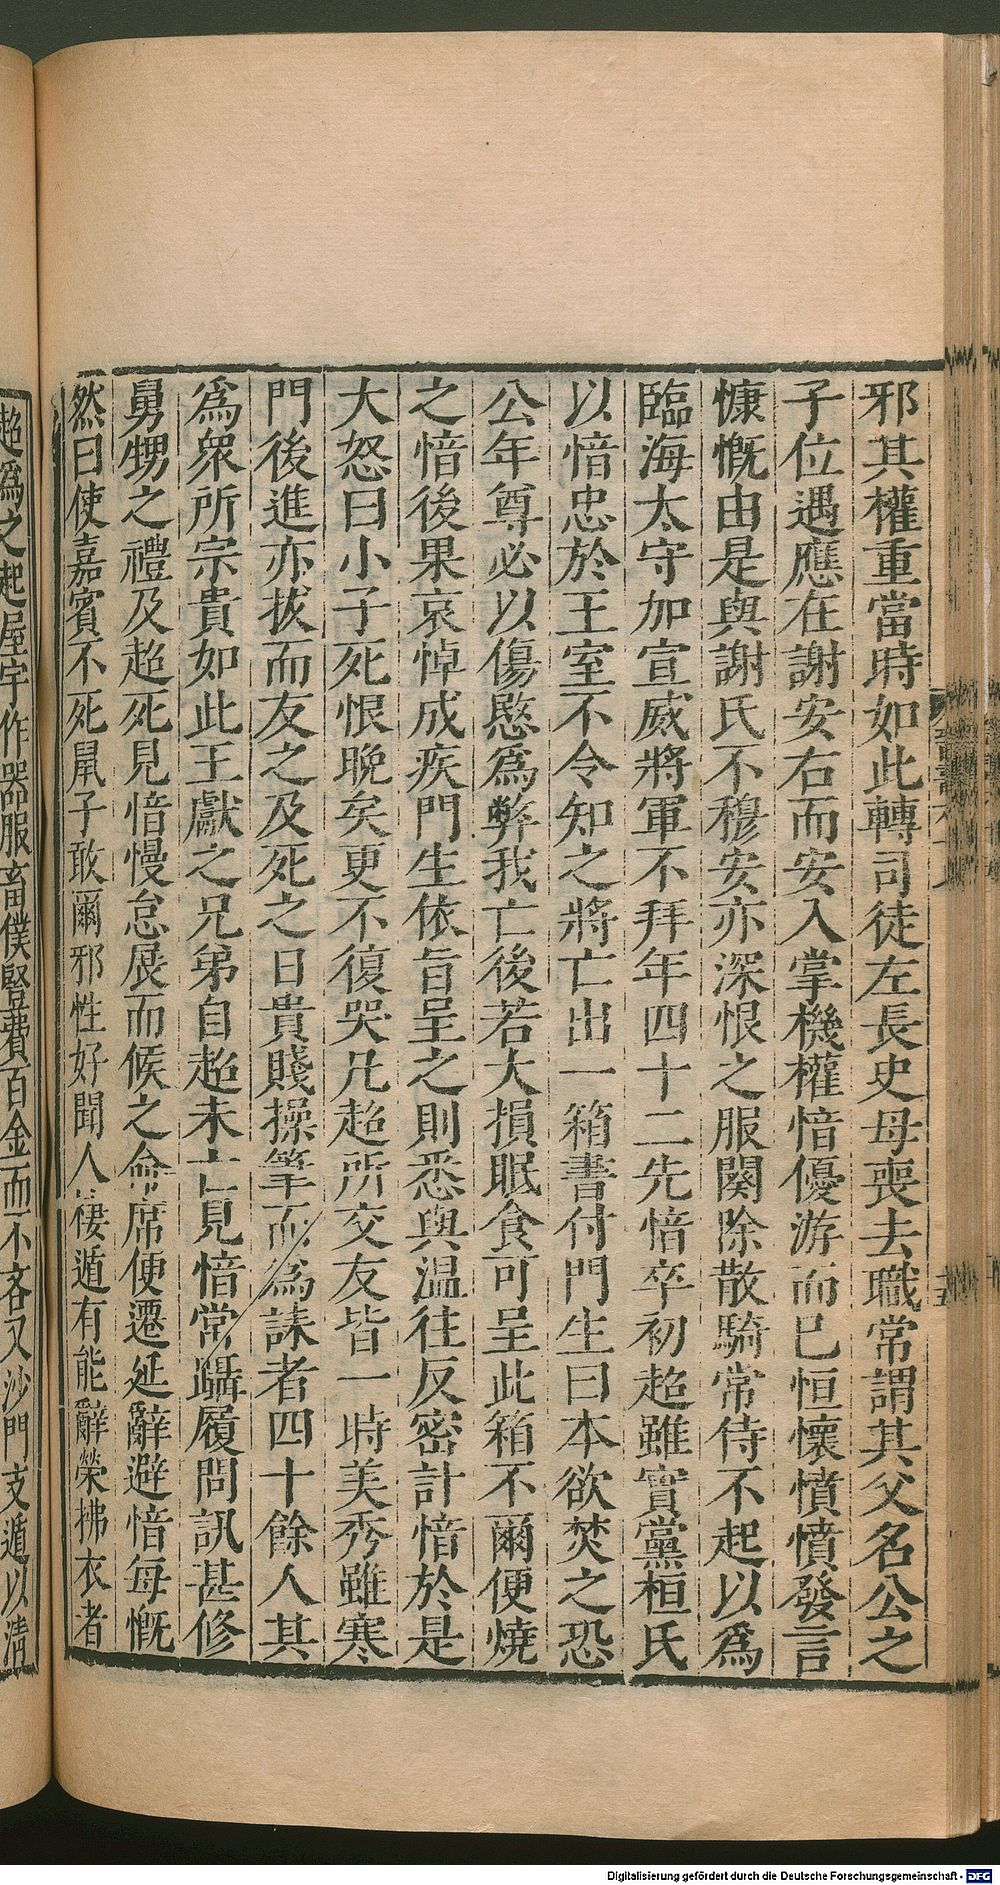 邪其權重當時如此轉司徒左長史母喪去職常謂其父名公之
子位遇應在謝安右而安入掌機權愔優游而已恒懷憤憤發言
慷慨由是與謝氏不穆安亦深恨之服闋除散騎常侍不起以爲
臨海太守加宣威將軍不拜年四十二先愔卒初超雖實黨桓氏
以愔忠於王室不令知之將亡出一箱書付門生曰本欲焚之恐
公年尊必以傷愍爲弊我亡後若大損眠食可呈此箱不爾便燒
之愔後果哀悼成疾門生依旨呈之則悉與温往反密計愔於是
大怒曰小子死恨晚矣更不復哭凡超所交友皆一時美秀雖寒
門後進亦拔而友之及死之日貴賤操筆而爲誄者四十餘人其
爲衆所宗貴如此王獻之兄弟自超未亡見愔常躡履問訊甚修
舅甥之禮及超死見愔慢怠展而候之命席便遷延辭避愔每慨
然曰使嘉賓不死鼠子敢爾邪性好聞人棲遁有能辭榮拂衣者
超爲之起屋宇作器服畜僕豎費百金而不吝又沙門支遁以清
Digitalisierung gefördert durch die Deutsche Forschungsgemeinschaft - DFG